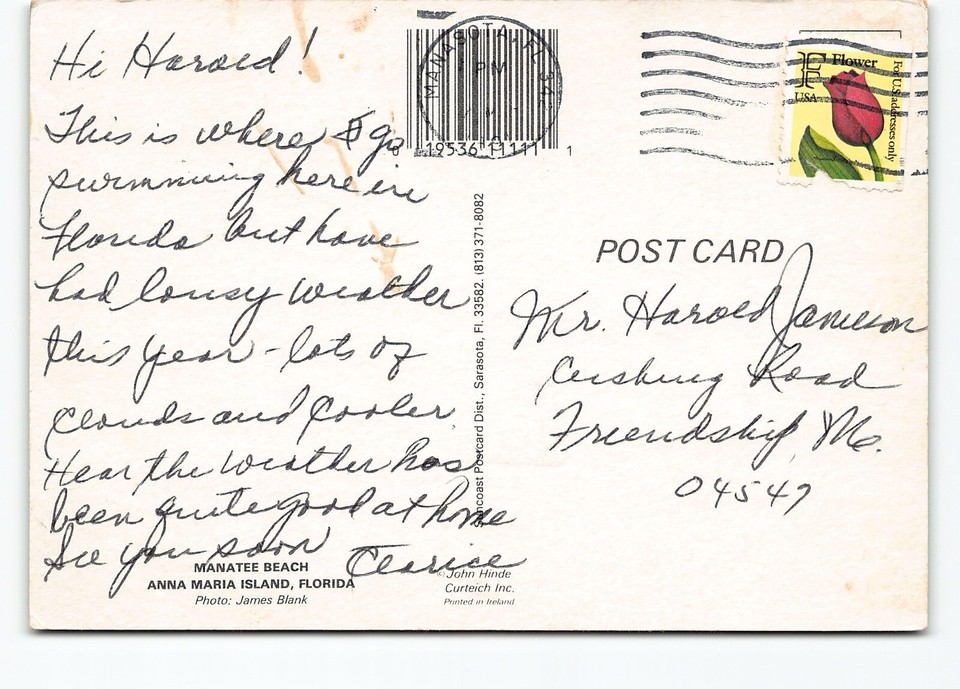 Hi Harold!
This is where I go
swimming here in
Florida but have
had lousy weather
this year - lots of
clouds and cooler.
Hear the weather has
been quite good at home
See you soon
Clarice
MANATEE BEACH
ANNA MARIA ISLAND, FLORIDA
Photo: James Blank
MANASOTA, FL 342
PM
0 19536 11111 1
Suncoast Postcard Dist., Sarasota, Fl. 33582. (813) 371-8082
© John Hinde
Curteich Inc.
Printed in Ireland
F Flower
USA
For U.S. addresses only
POST CARD
Mr. Harold Jameson
Cushing Road
Friendship, Me.
04547